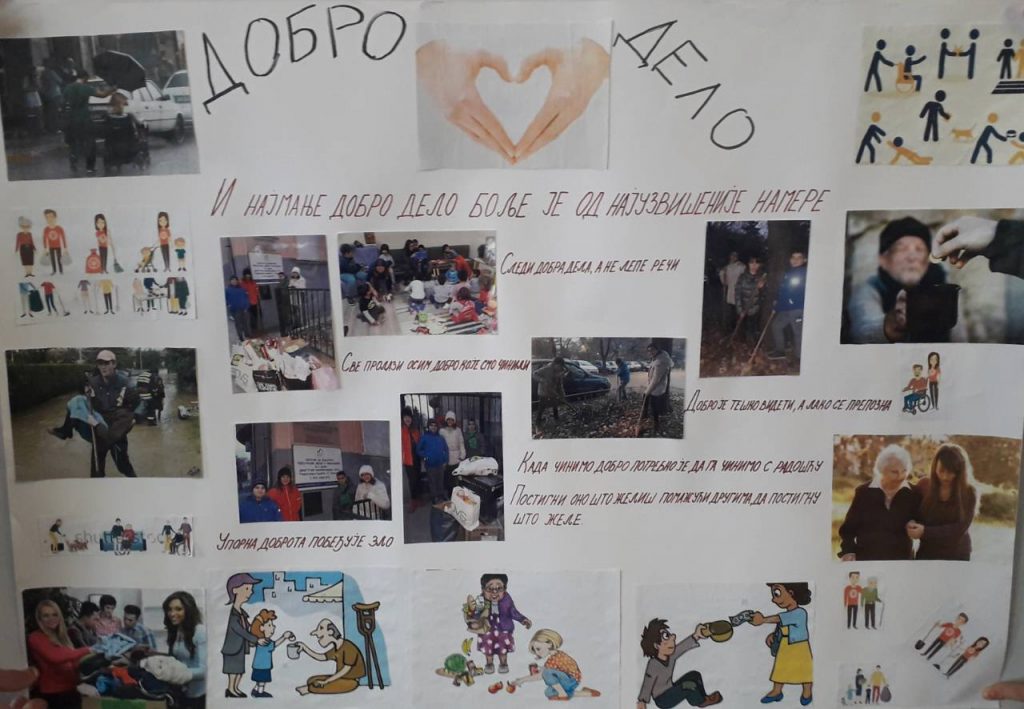 ДОБРО ДЕЛО
И НАЈМАЊЕ ДОБРО ДЕЛО БОЉЕ ЈЕ ОД НАЈУЗВИШЕНИЈЕ НАМЕРЕ
СЛЕДИ ДОБРА ДЕЛА, А НЕ ЛЕПЕ РЕЧИ
СВЕ ПРОЛАЗИ ОСИМ ДОБРО КОЈЕ СМО ЧИНИЛИ
ДОБРО ЈЕ ТЕШКО ВИДЕТИ, А ЛАКО СЕ ПРЕПОЗНА
КАДА ЧИНИМО ДОБРО ПОТРЕБНО ЈЕ ДА ГА ЧИНИМО С РАДОШЋУ
ПОСТИГНИ ОНО ШТО ЖЕЛИШ ПОМАЖУЋИ ДРУГИМА, ДА ПОСТИГНУ
ШТО ЖЕЛЕ
УПОРНА ДОБРОТА ПОБЕЂУЈЕ ЗЛО